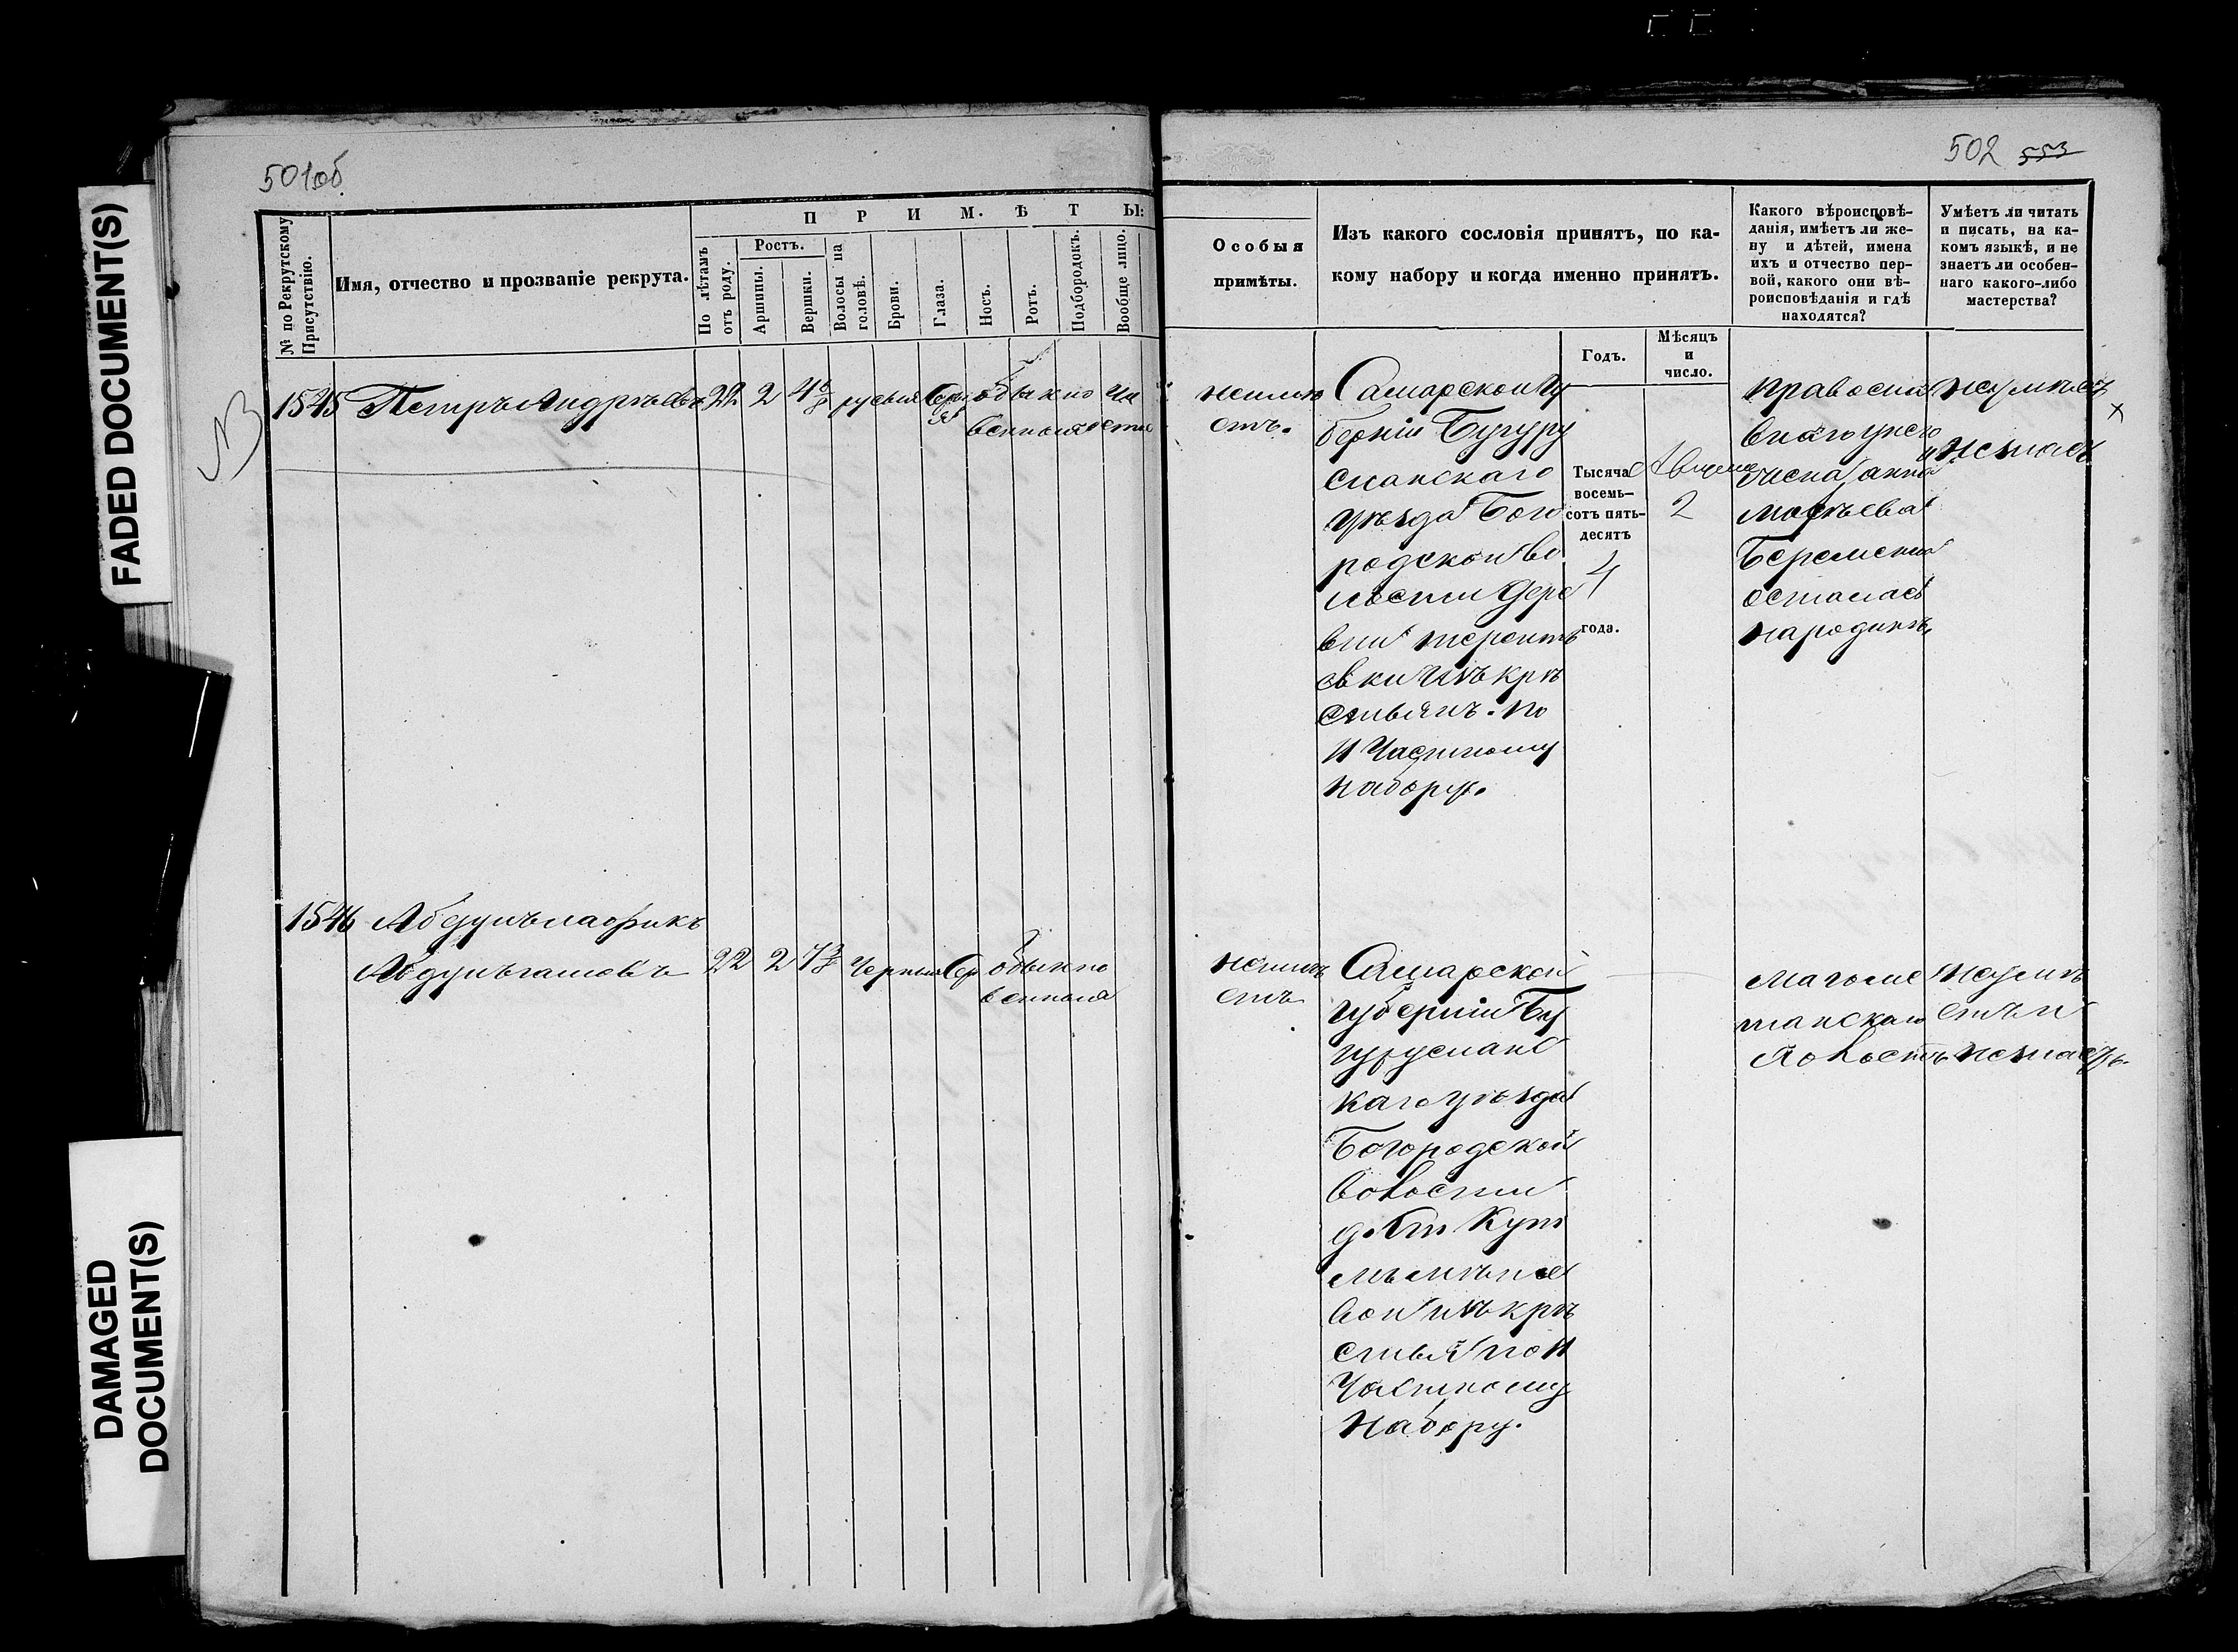 501об
502 553
FADED DOCUMENT(S)
DAMAGED
DOCUMENT(S)
№ по Рекрутскому
Присутствію.
Имя, отчество и прозваніе рекрута.
П Р И М. Ѣ Т Ы:
По лѣтамъ
отъ роду.
Ростъ.
Аршины.
Вершки.
Волосы на
головѣ.
Брови.
Глаза.
Носъ.
Ротъ.
Подбородокъ.
Вообще лицо.
Особыя
примѣты.
Изъ какого сословія принятъ, по ка-
кому набору и когда именно принятъ.
Годъ.
Мѣсяцъ
и
число.
Какого вѣроисповѣ-
данія, имѣетъ ли же-
ну и дѣтей, имена
ихъ и отчество пер-
вой, какого они вѣ-
роисповѣданія и гдѣ
находятся?
Умѣетъ ли читать
и писать, на ка-
комъ языкѣ, и не
знаетъ ли особен-
наго какого-либо
мастерства?
1545 Петръ Андрѣевъ 22 2 4 5/8 русыя Серы обыкно чи
я венныя
неимѣ
етъ.
Самарской гу
берніи Бугуру
сланскаго
уѣзда Бого
родской во
лости дере
вни
овки изъ крѣ
стьянъ. по
11 Частному
набору.
Тысяча
восемь-
сотъ пять-
десятъ
4
года.
Августа
2
православ
внаго унего
жена анна
беременна
осталась
народинѣ
неумѣетъ
и незнаетъ
1546 Абдулълафикъ
22 2 7 3/8 Черныя Сер обыкно
венныя
неимѣ
етъ
Самарской
губерніи Бу
гурусланс
каго уѣзда
Богородской
Волости
вой изъ крѣ
стьян по 11
Частному
набору.
Магоме
танскаго
Холостъ
Неумѣ
етъ и
незнаетъ.